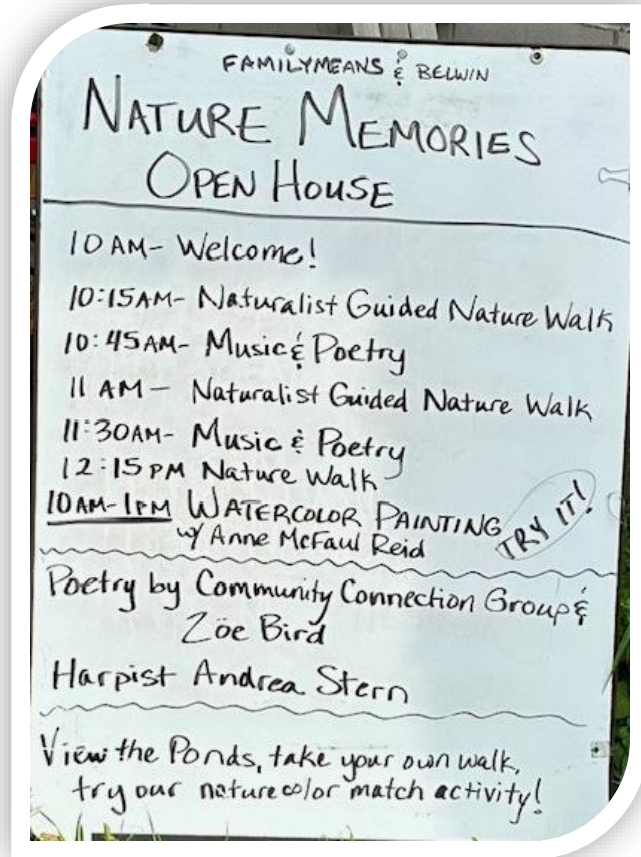 FAMILYMEANS & BELWIN
NATURE MEMORIES
OPEN HOUSE
10 AM- Welcome!
10:15AM- Naturalist Guided Nature Walk
10:45AM- Music & Poetry
11 AM- Naturalist Guided Nature Walk
11:30AM- Music & Poetry
12:15 PM Nature Walk
10AM-1PM WATERCOLOR PAINTING TRY IT!
w/ Anne McFaul Reid
Poetry by Community Connection Group &
Zöe Bird
Harpist Andrea Stern
View the Ponds, take your own walk,
try our nature color match activity!